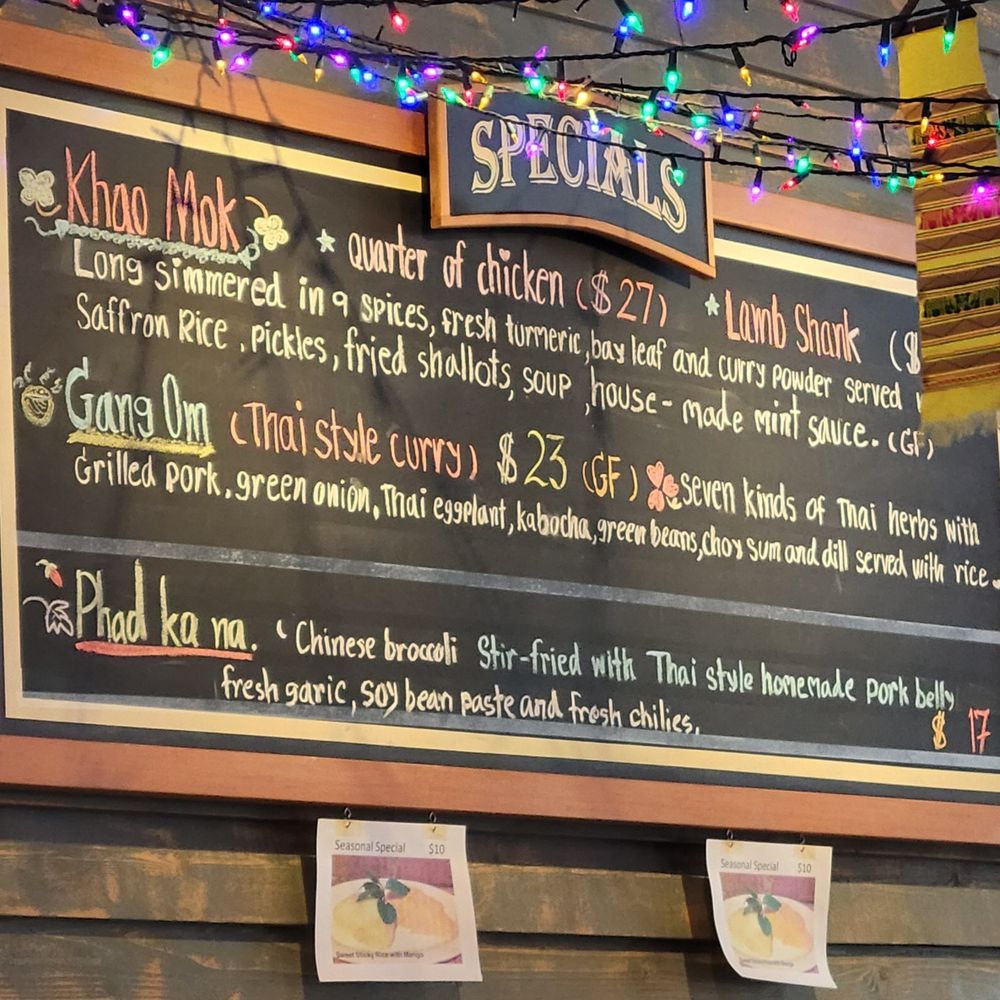 SPECIALS
Khao Mok * quarter of chicken ($27) * Lamb Shank ($
Long simmered in 9 spices, fresh turmeric, bay leaf and curry powder served
Saffron Rice, pickles, fried shallots, soup, house-made mint sauce. (GF)
Gang Om (Thai style curry) $23 (GF) seven kinds of Thai herbs with
Grilled pork, green onion, Thai eggplant, kabocha, green beans, choy sum and dill served with rice.
Phad ka na. Chinese broccoli Stir-fried with Thai style homemade pork belly
fresh garic, soy bean paste and fresh chilies.
$ 17
Seasonal Special $10
Sweet Sticky Rice with Mango
Seasonal Special $10